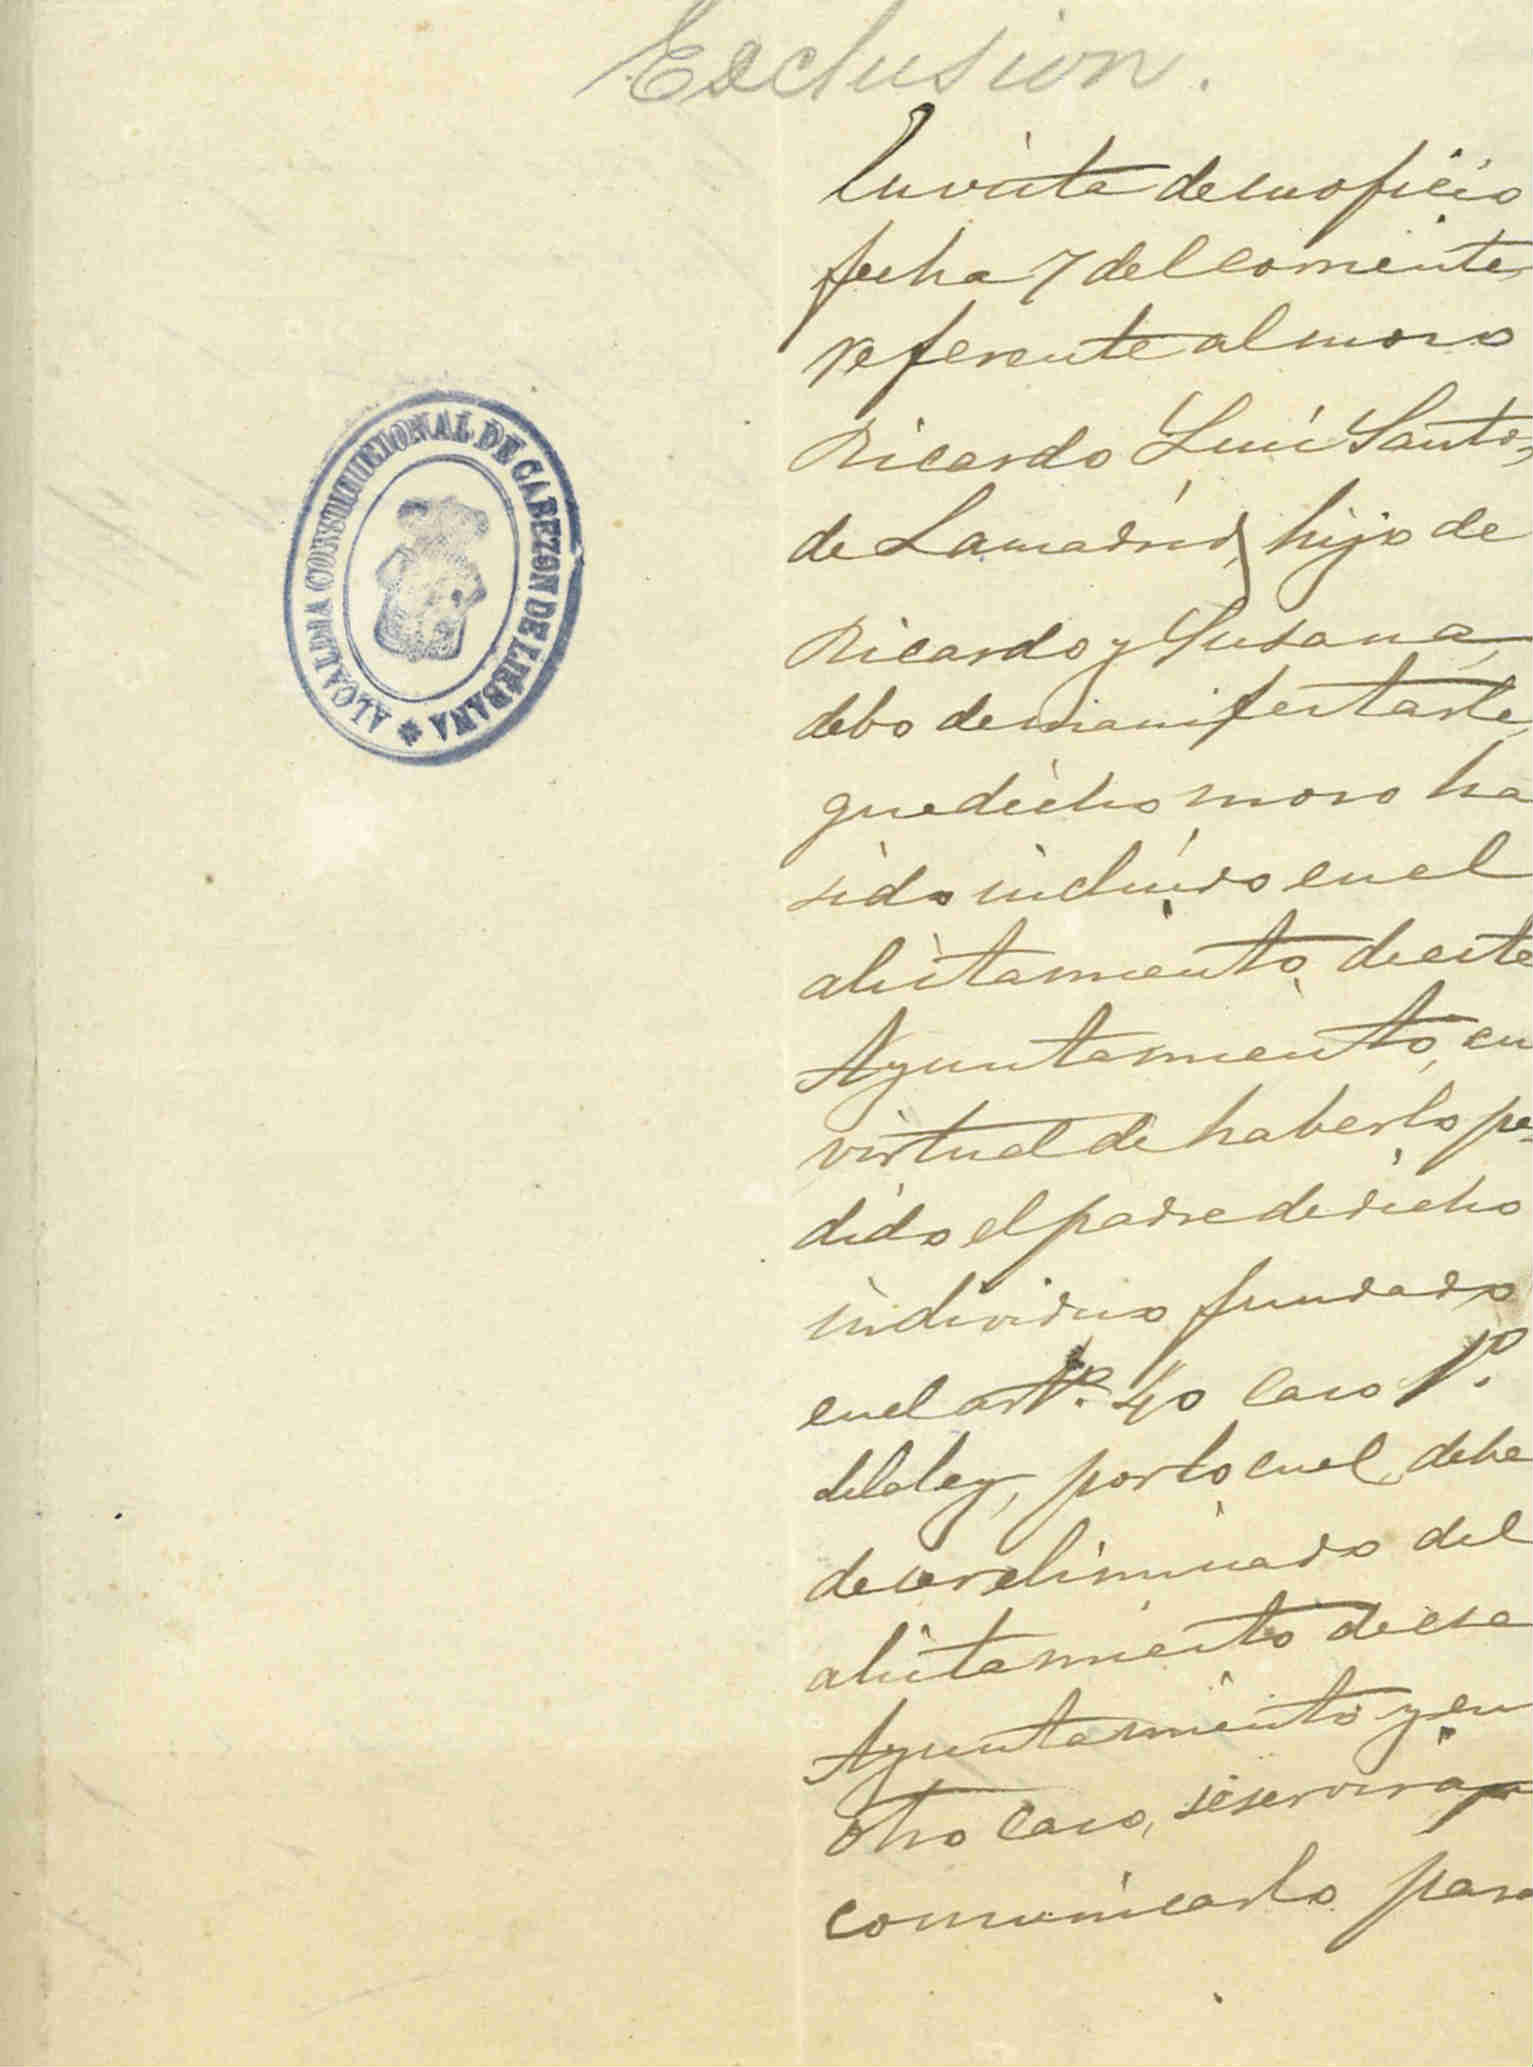 Exclusion.
En vista de su oficio
fecha 7 del corriente,
referente al mozo
Ricardo Luis Santos
de Lamadrid, hijo de
Ricardo y Susana,
debo de manifestarle,
que dicho mozo ha
sido incluido en el
alistamiento de este
Ayuntamiento, en
virtud de haberlo pe-
dido el padre de dicho
individuo fundado
en el artº. 40 caso 1º.
de la ley, por lo cual debe
de ser eliminado del
alistamiento de ese
Ayuntamiento y en
otro caso, se servirá
comunicarlo para
ALCALDIA CONSTITUCIONAL DE CABEZON DE LIEBANA *